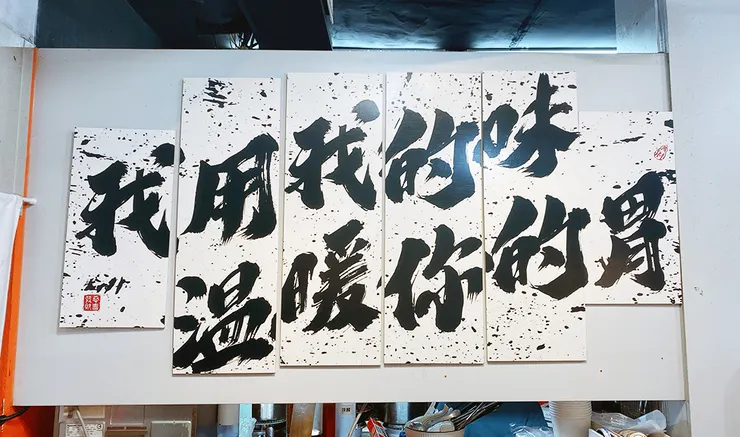 我用我的味
温暖你的胃